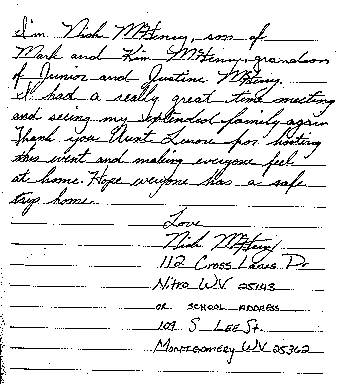 I'm Nick McHenry, son of
Mark and Kim McHenry, grandson
of Junior and Justine McHenry.
I had a really great time meeting
and seeing my extended family again
Thank you Aunt Lenore for hosting
this event and making everyone feel
at home. Hope everyone has a safe
trip home.
Love
Nick McHenry
112 Cross Lanes Dr
Nitro W.V. 25143
or SCHOOL ADDRESS
109 S LEE St.
MONTGOMERY WV 25362